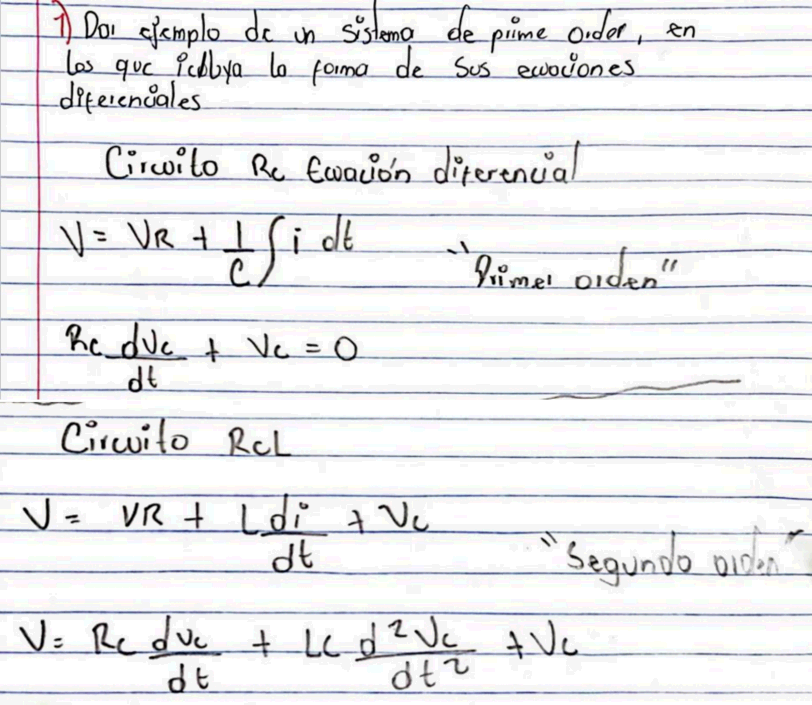 1) Dar ejemplo de un sistema de prime orden, en
los que incluya la forma de sus ecuaciones
diferenciales
Circuito Rc Ecuación diferencial
V = VR + 1/C ∫ i dt "Primer orden"
Rc dVc/dt + Vc = 0
Circuito RcL
V = VR + L di/dt + Vc "Segundo orden"
V = Rc dvc/dt + Lc d²Vc/dt² + Vc